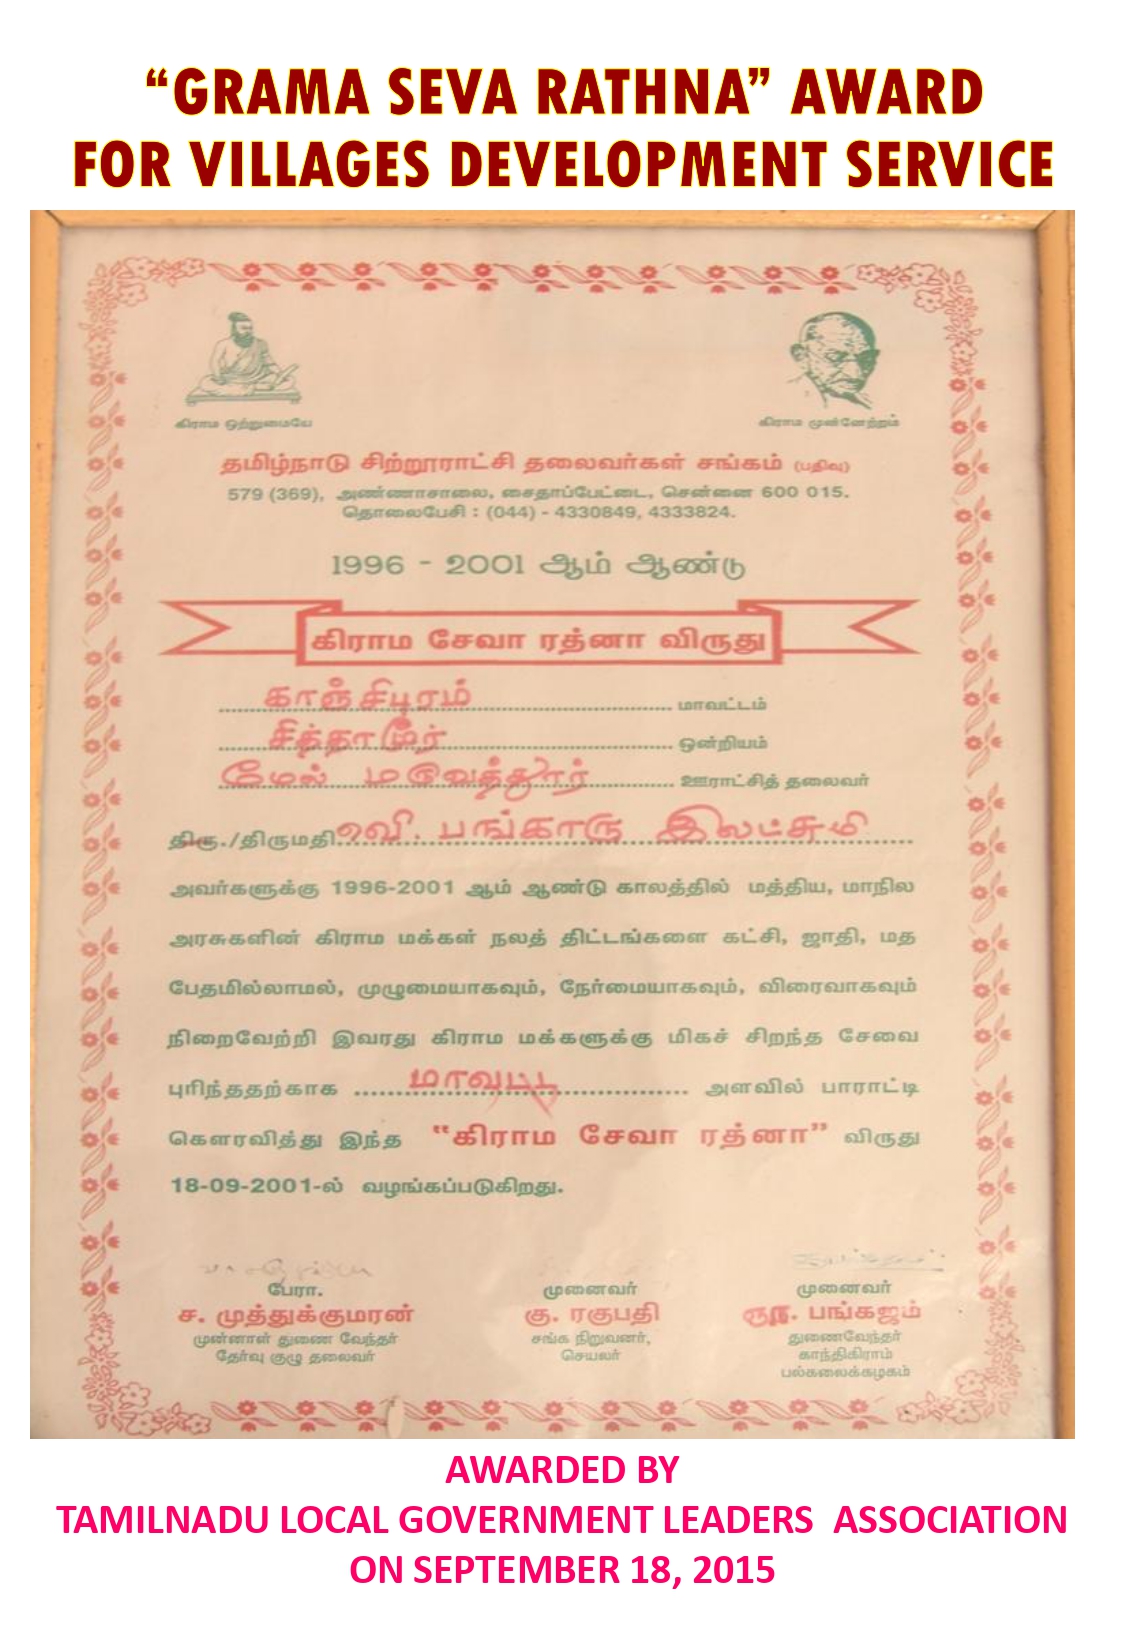 “GRAMA SEVA RATHNA” AWARD
FOR VILLAGES DEVELOPMENT SERVICE
கிராம ஒற்றுமையே
கிராம முன்னேற்றம்
தமிழ்நாடு சிற்றூராட்சி தலைவர்கள் சங்கம் (பதிவு)
579 (369), அண்ணாசாலை, சைதாப்பேட்டை, சென்னை 600 015.
தொலைபேசி : (044) - 4330849, 4333824.
1996 - 2001 ஆம் ஆண்டு
கிராம சேவா ரத்னா விருது
காஞ்சிபுரம் மாவட்டம்
சித்தாமூர் ஒன்றியம்
மேல் மருவத்தூர் ஊராட்சித் தலைவர்
திரு./திருமதி. வி. பங்காரு இலட்சுமி
அவர்களுக்கு 1996-2001 ஆம் ஆண்டு காலத்தில் மத்திய, மாநில
அரசுகளின் கிராம மக்கள் நலத் திட்டங்களை கட்சி, ஜாதி, மத
பேதமில்லாமல், முழுமையாகவும், நேர்மையாகவும், விரைவாகவும்
நிறைவேற்றி இவரது கிராம மக்களுக்கு மிகச் சிறந்த சேவை
புரிந்ததற்காக மாவட்ட அளவில் பாராட்டி
கௌரவித்து இந்த “கிராம சேவா ரத்னா” விருது
18-09-2001-ல் வழங்கப்படுகிறது.
பேரா.
ச. முத்துக்குமரன்
முன்னாள் துணை வேந்தர்
தேர்வு குழு தலைவர்
முனைவர்
கு. ரகுபதி
சங்க நிறுவனர்,
செயலர்
முனைவர்
பங்கஜம்
துணைவேந்தர்
காந்திகிராம்
பல்கலைக்கழகம்
AWARDED BY
TAMILNADU LOCAL GOVERNMENT LEADERS ASSOCIATION
ON SEPTEMBER 18, 2015